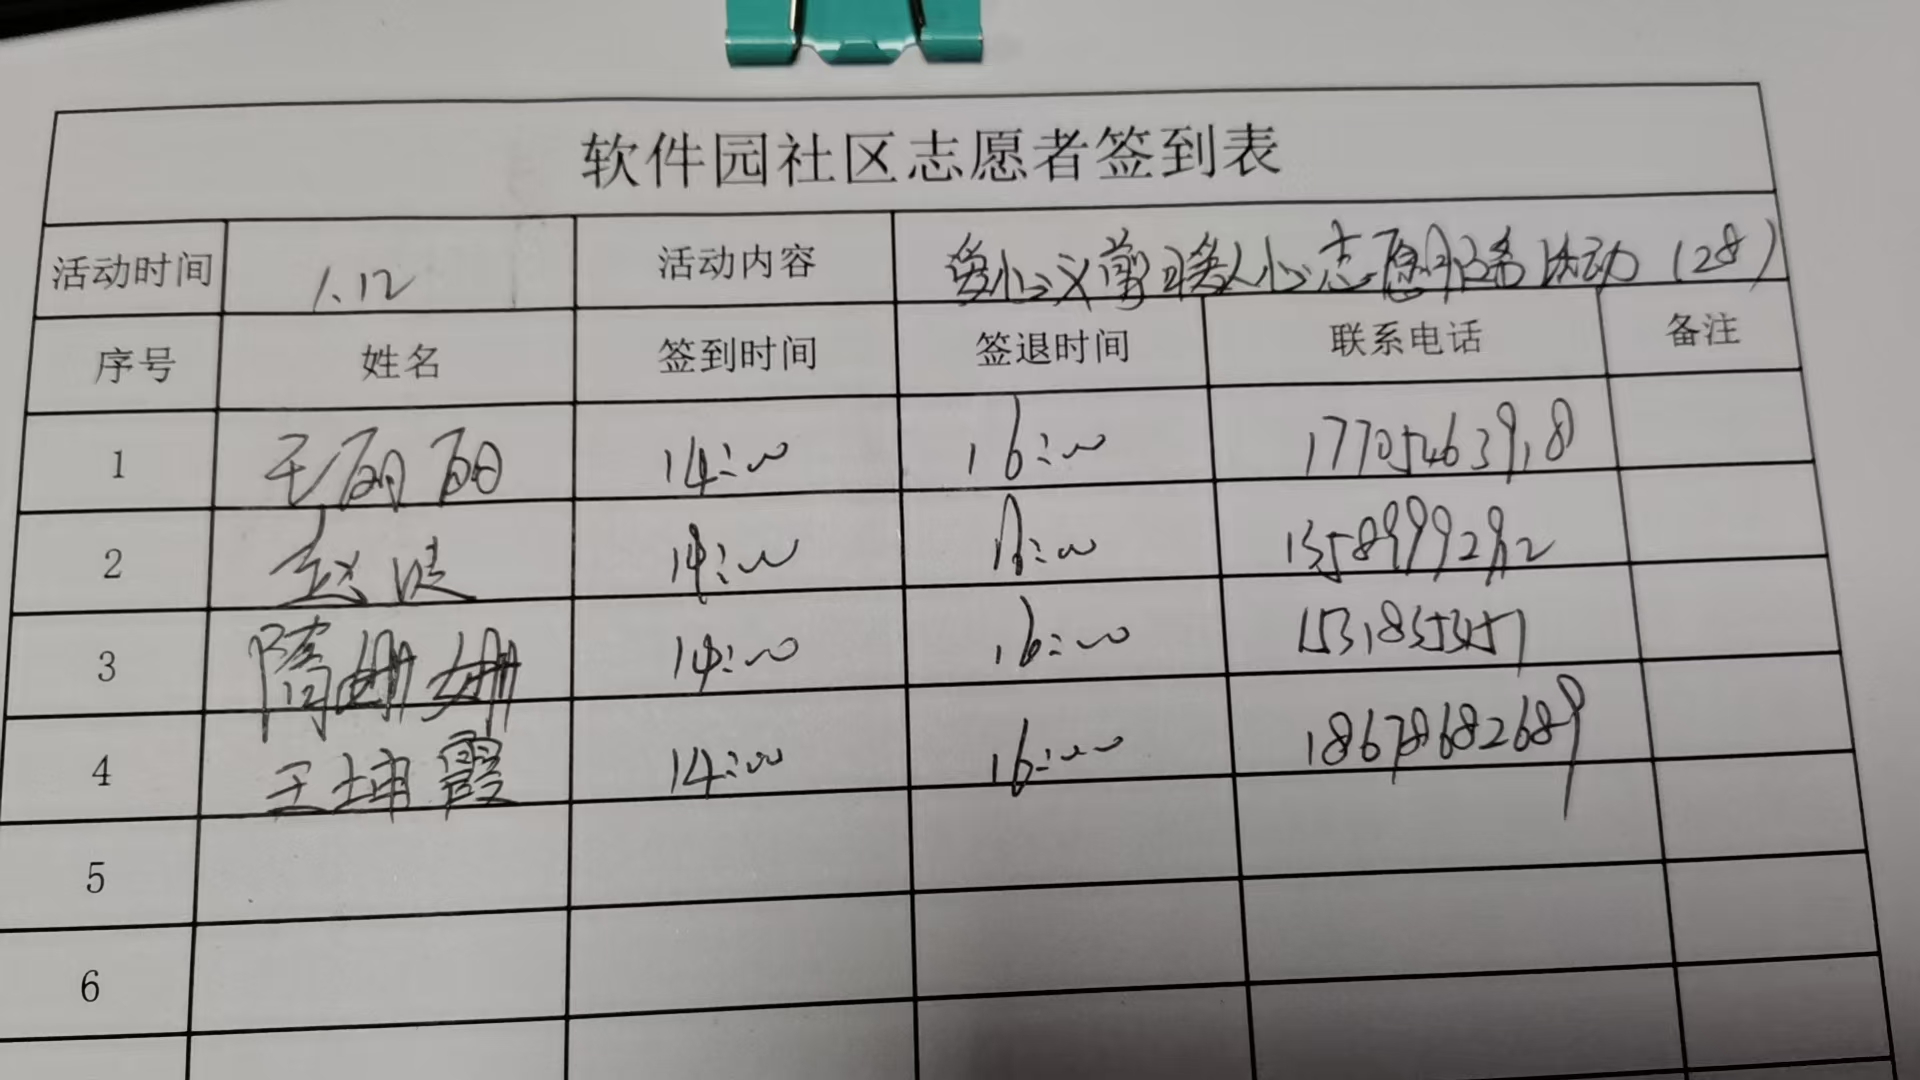 软件园社区志愿者签到表
活动时间 1.12 活动内容 爱心义剪 暖人心志愿服务活动（28）
序号 姓名 签到时间 签退时间 联系电话 备注
1 王丽丽 14:00 16:00 17705463918
2 赵 14:00 13589992912
3 隋姗姗 14:00 16:00
4 王坤霞 14:00 16:00 18678682689
5
6